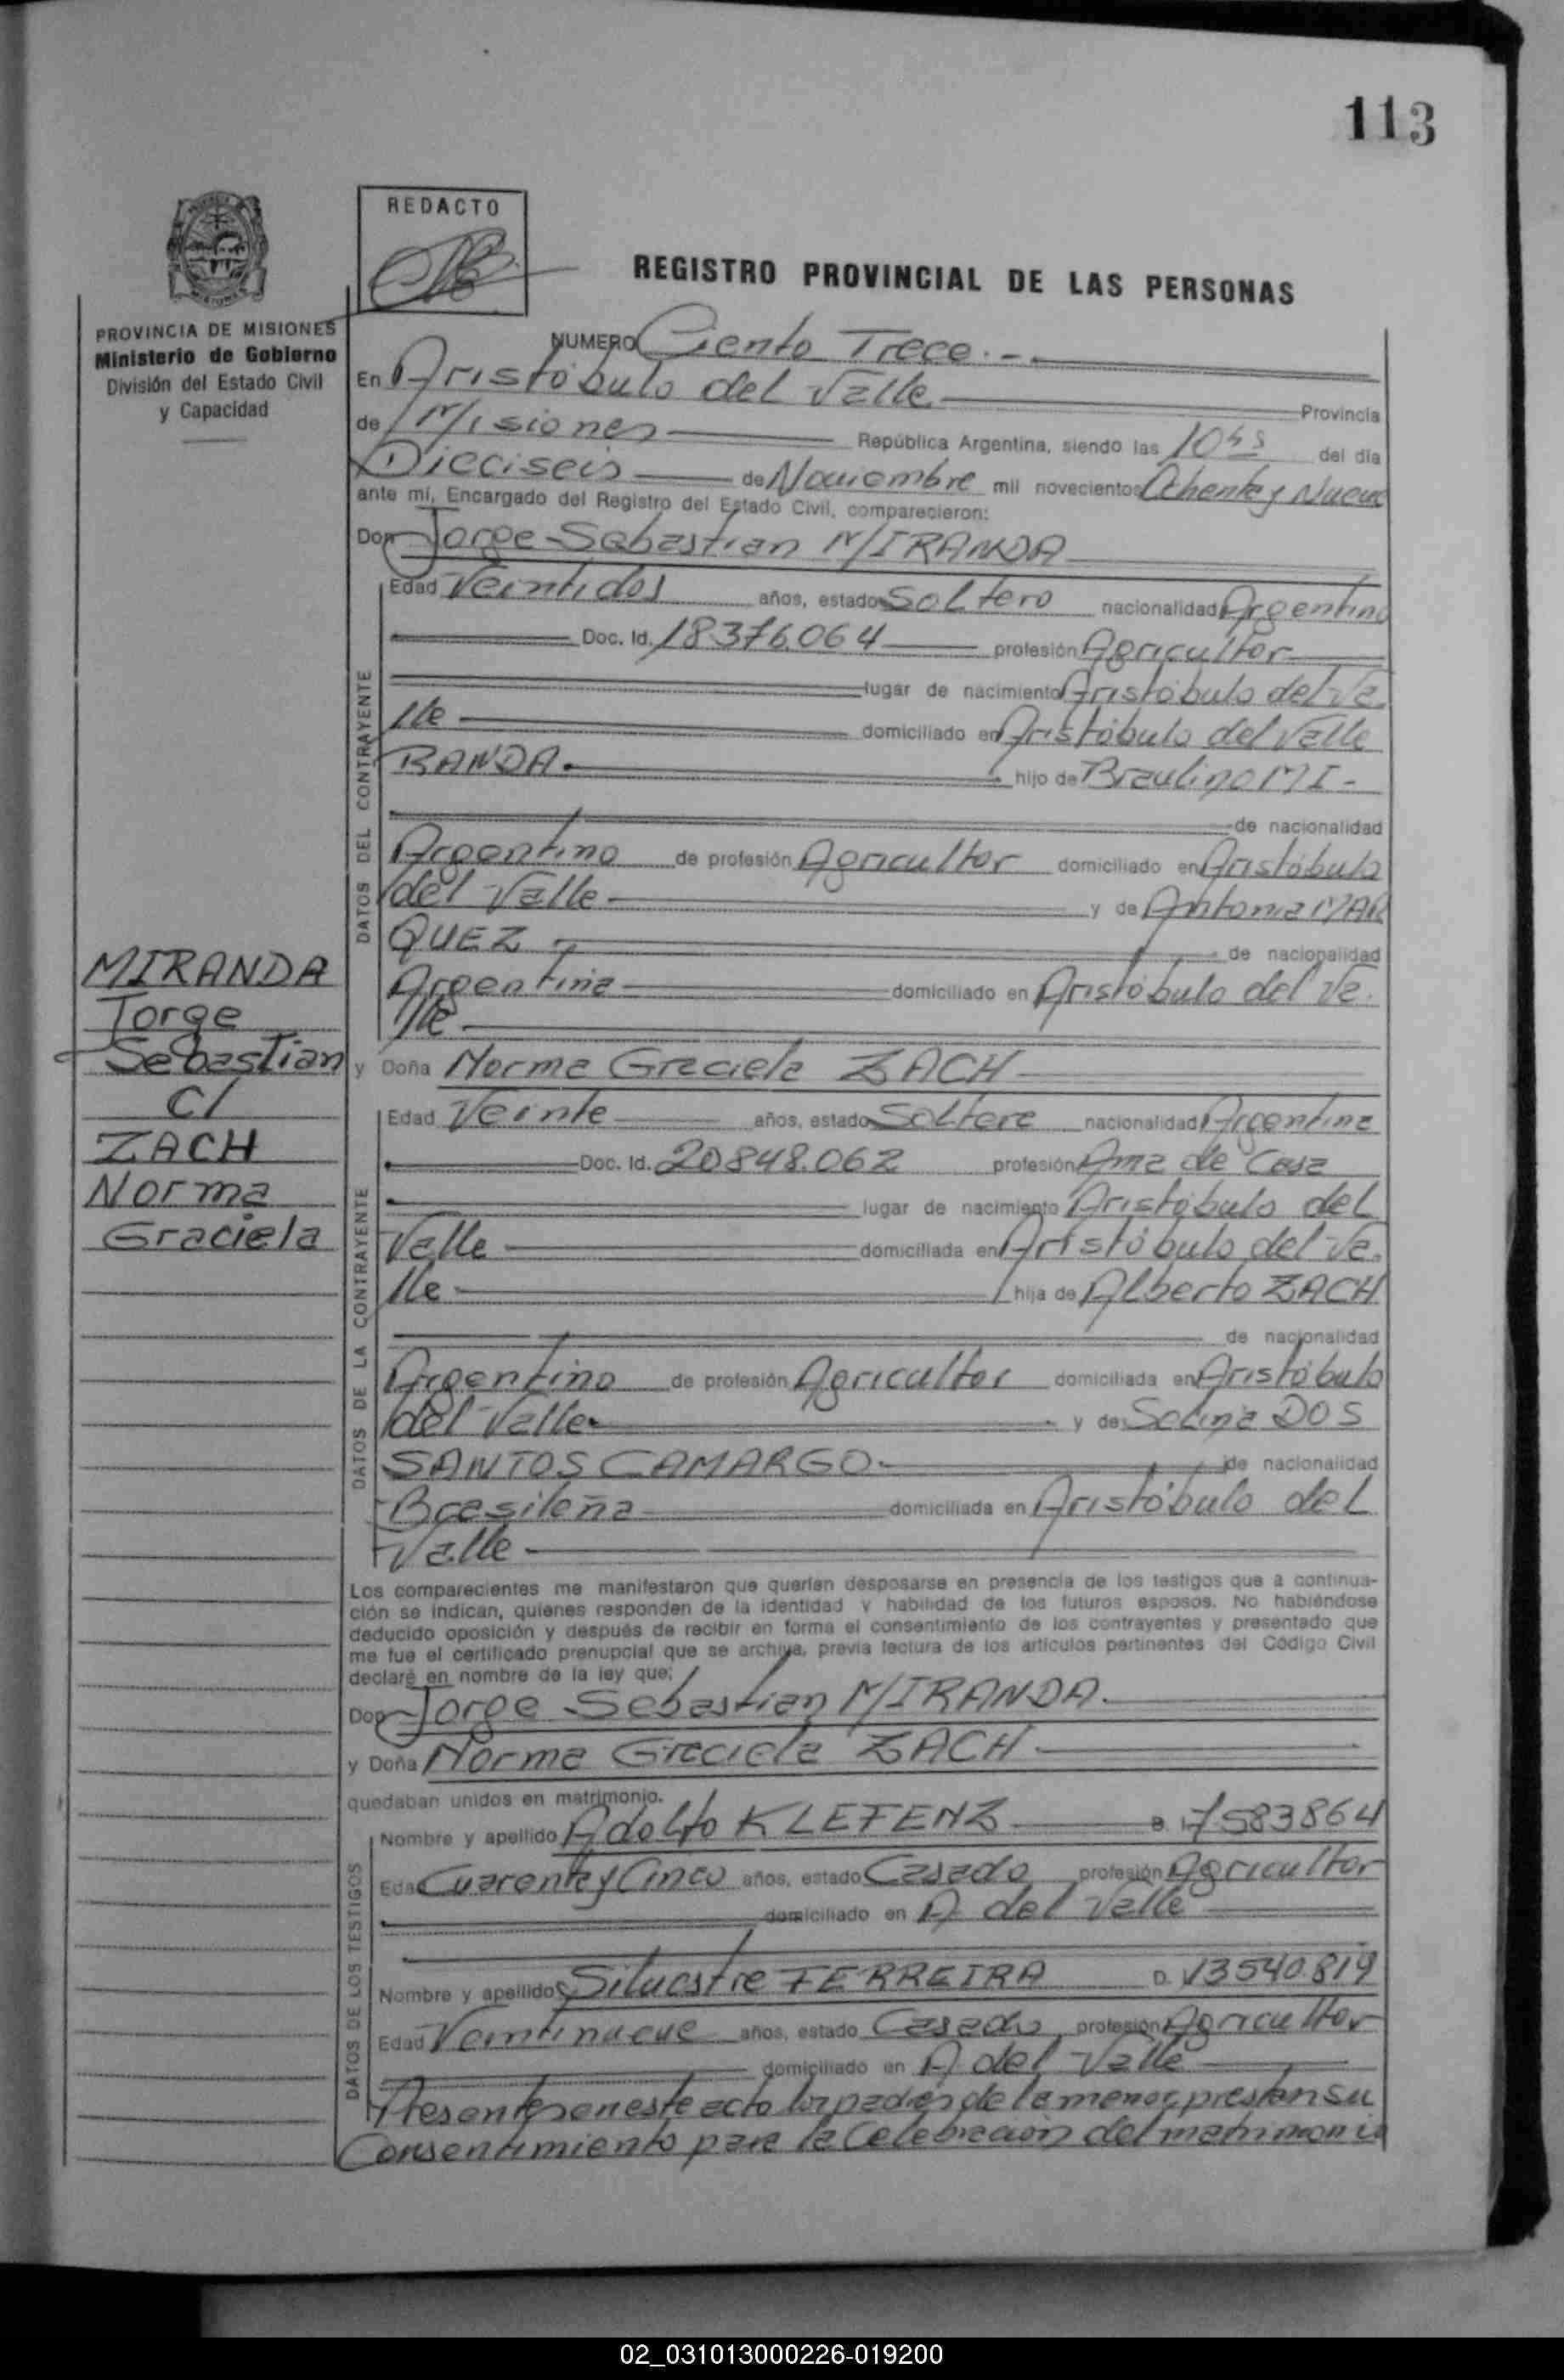 113
REDACTO
REGISTRO PROVINCIAL DE LAS PERSONAS
PROVINCIA DE MISIONES
Ministerio de Gobierno
División del Estado Civil
y Capacidad
NUMERO Ciento Trece.-
En Aristóbulo del Valle Provincia
de Misiones República Argentina, siendo las 10hs del día
Dieciseis de Noviembre mil novecientos Ochenta y Nueve
ante mí, Encargado del Registro del Estado Civil, comparecieron:
Don Jorge Sebastian MIRANDA
DATOS DEL CONTRAYENTE
Edad Veintidos años, estado Soltero nacionalidad Argentino
Doc. Id. 18.376.064 profesión Agricultor
lugar de nacimiento Aristóbulo del Va
lle domiciliado en Aristóbulo del Valle
RANDA. hijo de Braulino MI-
de nacionalidad
Argentino de profesión Agricultor domiciliado en Aristóbulo
del Valle y de Antonia MAR
QUEZ de nacionalidad
Argentina domiciliado en Aristóbulo del Va.
lle
MIRANDA
Jorge
Sebastian
C/
ZACH
Norma
Graciela
y Doña Norma Graciela ZACH
DATOS DE LA CONTRAYENTE
Edad Veinte años, estado Soltera nacionalidad Argentina
Doc. Id. 20.848.062 profesión Ama de Casa
lugar de nacimiento Aristóbulo del
Valle domiciliada en Aristóbulo del Va.
lle hija de Alberto ZACH
de nacionalidad
Argentino de profesión Agricultor domiciliada en Aristóbulo
del Valle y de Selina DOS
SANTOS CAMARGO. de nacionalidad
Brasileña domiciliada en Aristóbulo del
Valle
Los comparecientes me manifestaron que querían desposarse en presencia de los testigos que a continua-
ción se indican, quienes responden de la identidad y habilidad de los futuros esposos. No habiéndose
deducido oposición y después de recibir en forma el consentimiento de los contrayentes y presentado que
me fue el certificado prenupcial que se archiva, previa lectura de los artículos pertinentes del Código Civil
declaré en nombre de la ley que:
Don Jorge Sebastian MIRANDA.
y Doña Norma Graciela ZACH
quedaban unidos en matrimonio.
DATOS DE LOS TESTIGOS
Nombre y apellido Adolfo KLEFENZ 7583864
Edad Cuarenta y Cinco años, estado Casado profesión Agricultor
domiciliado en A. del Valle
Nombre y apellido Silvestre FERREIRA D. 13540.819
Edad Veintinueve años, estado Casado profesión Agricultor
domiciliado en A del Valle
Presentes en este acto los padres de la menor, prestan su
Consentimiento para la Celebracion del matrimonio
02_031013000226-019200